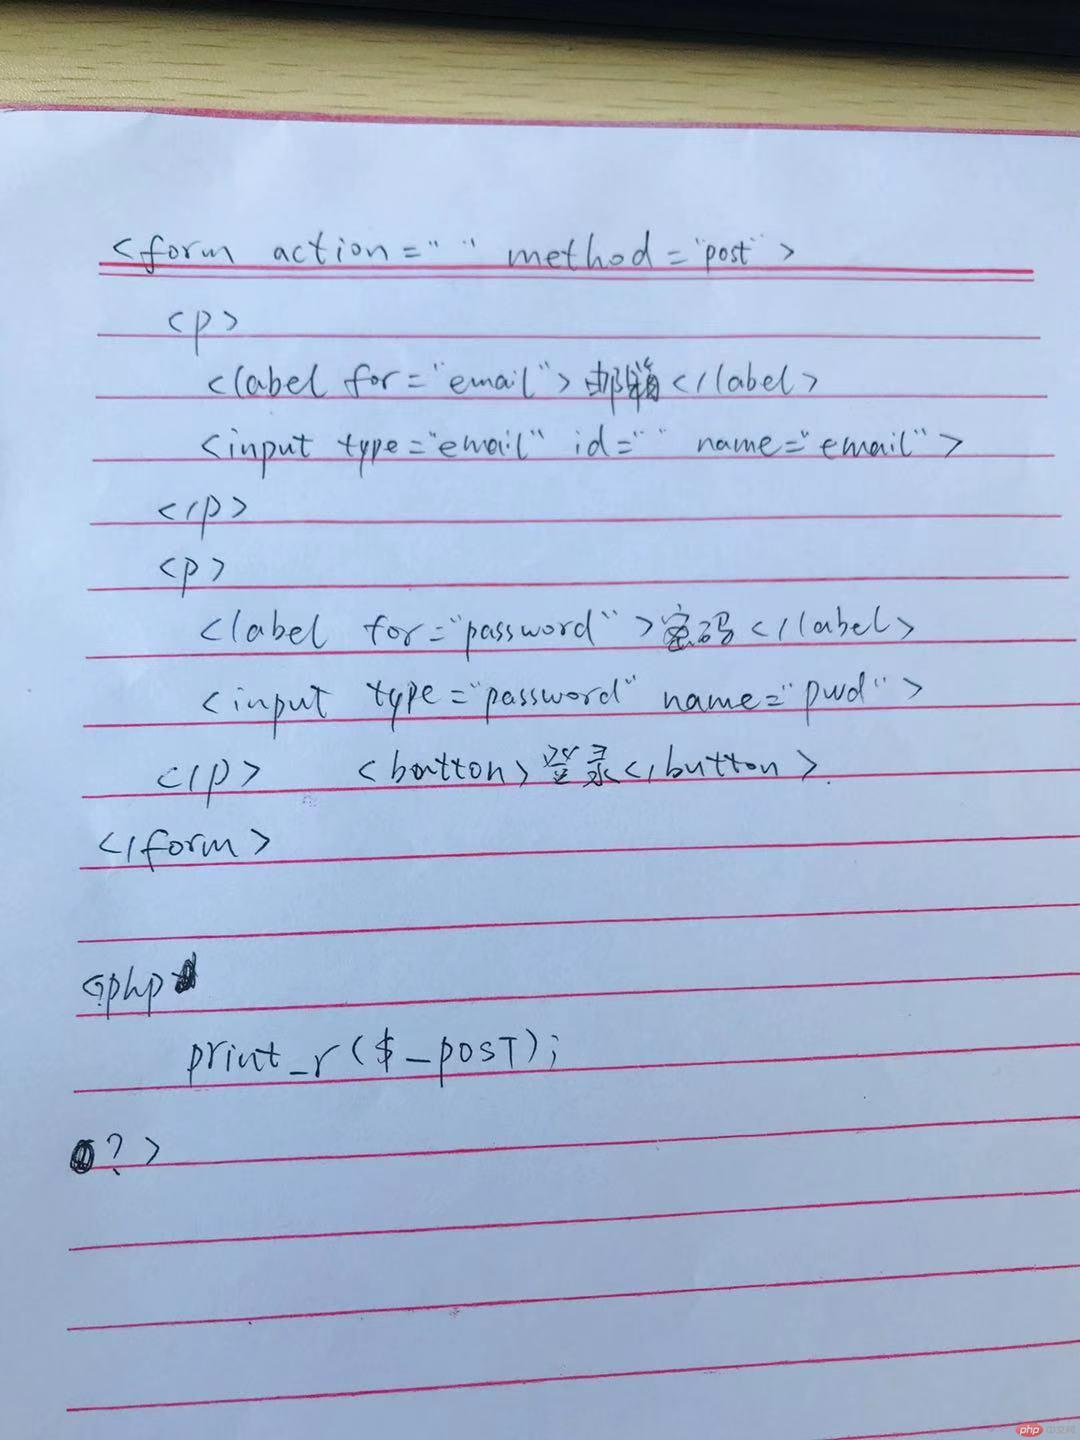 <form action=" " method="post">
<p>
<label for="email">邮箱</label>
<input type="email" id=" " name="email">
</p>
<p>
<label for="password">密码</label>
<input type="password" name="pwd">
</p> <button>登录</button>
</form>
<?php
print_r($_POST);
?>
php 中文网